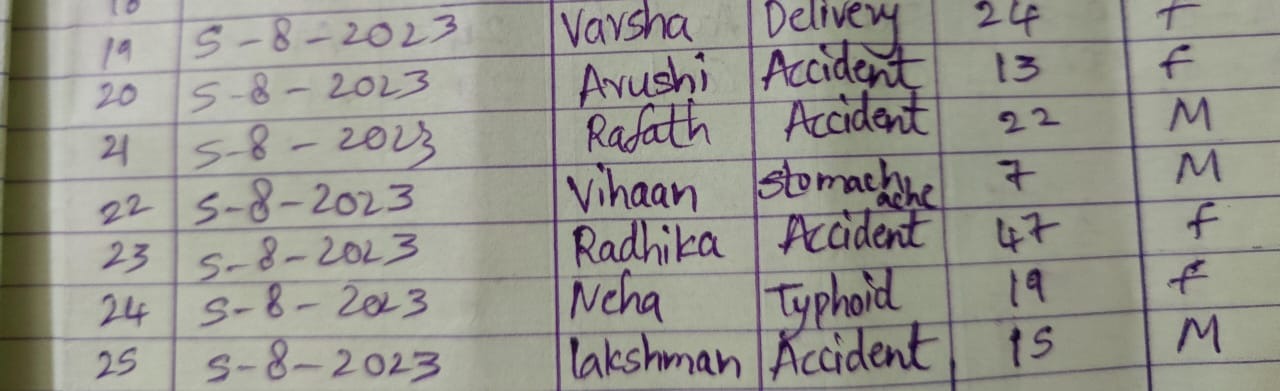 18
19 5-8-2023 Varsha Delivery 24 f
20 5-8-2023 Arushi Accident 13 f
21 5-8-2023 Rafath Accident 22 M
22 5-8-2023 Vihaan stomach ache 7 M
23 5-8-2023 Radhika Accident 47 f
24 5-8-2023 Neha Typhoid 19 f
25 5-8-2023 lakshman Accident 15 M